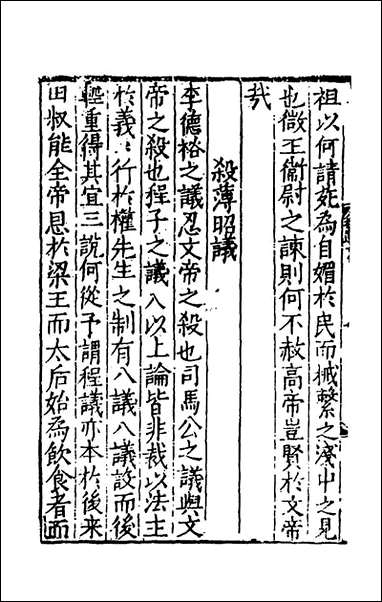 祖以何請死為自媚於民而械繫之淺中之見
也微王衞尉之諫則何不赦高帝豈賢於文帝
哉
殺薄昭議
李德裕之議忍文帝之殺也司馬公之議與文
帝之殺也程子之議入以上論皆非裁以法主
於義義行於權先生之制有八議八議設而後
輕重得其宜三說何從予謂程議亦本於後来
田叔能全帝恩於梁王而太后始為飲食者而